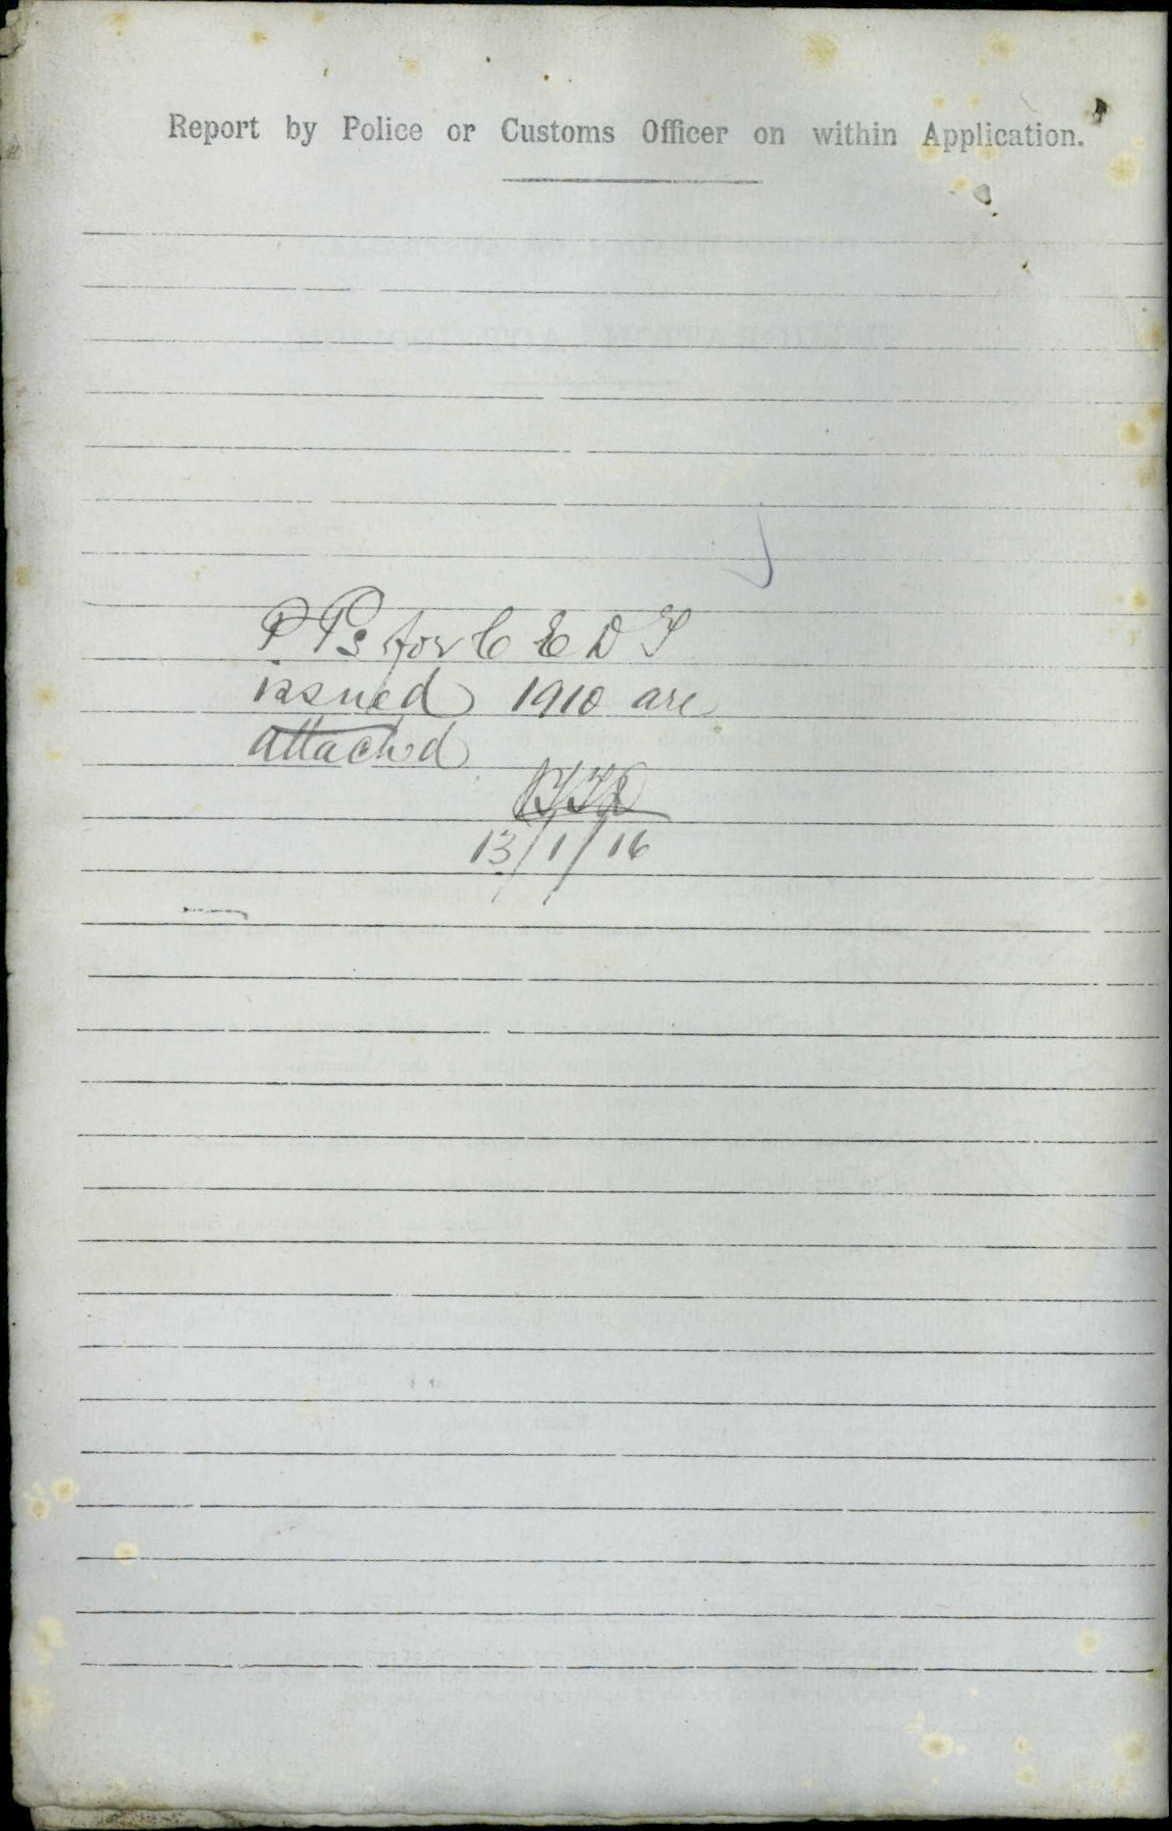 Report by Police or Customs Officer on within Application.
P Ps for C E D T
issued 1910 are
attached
13/1/16